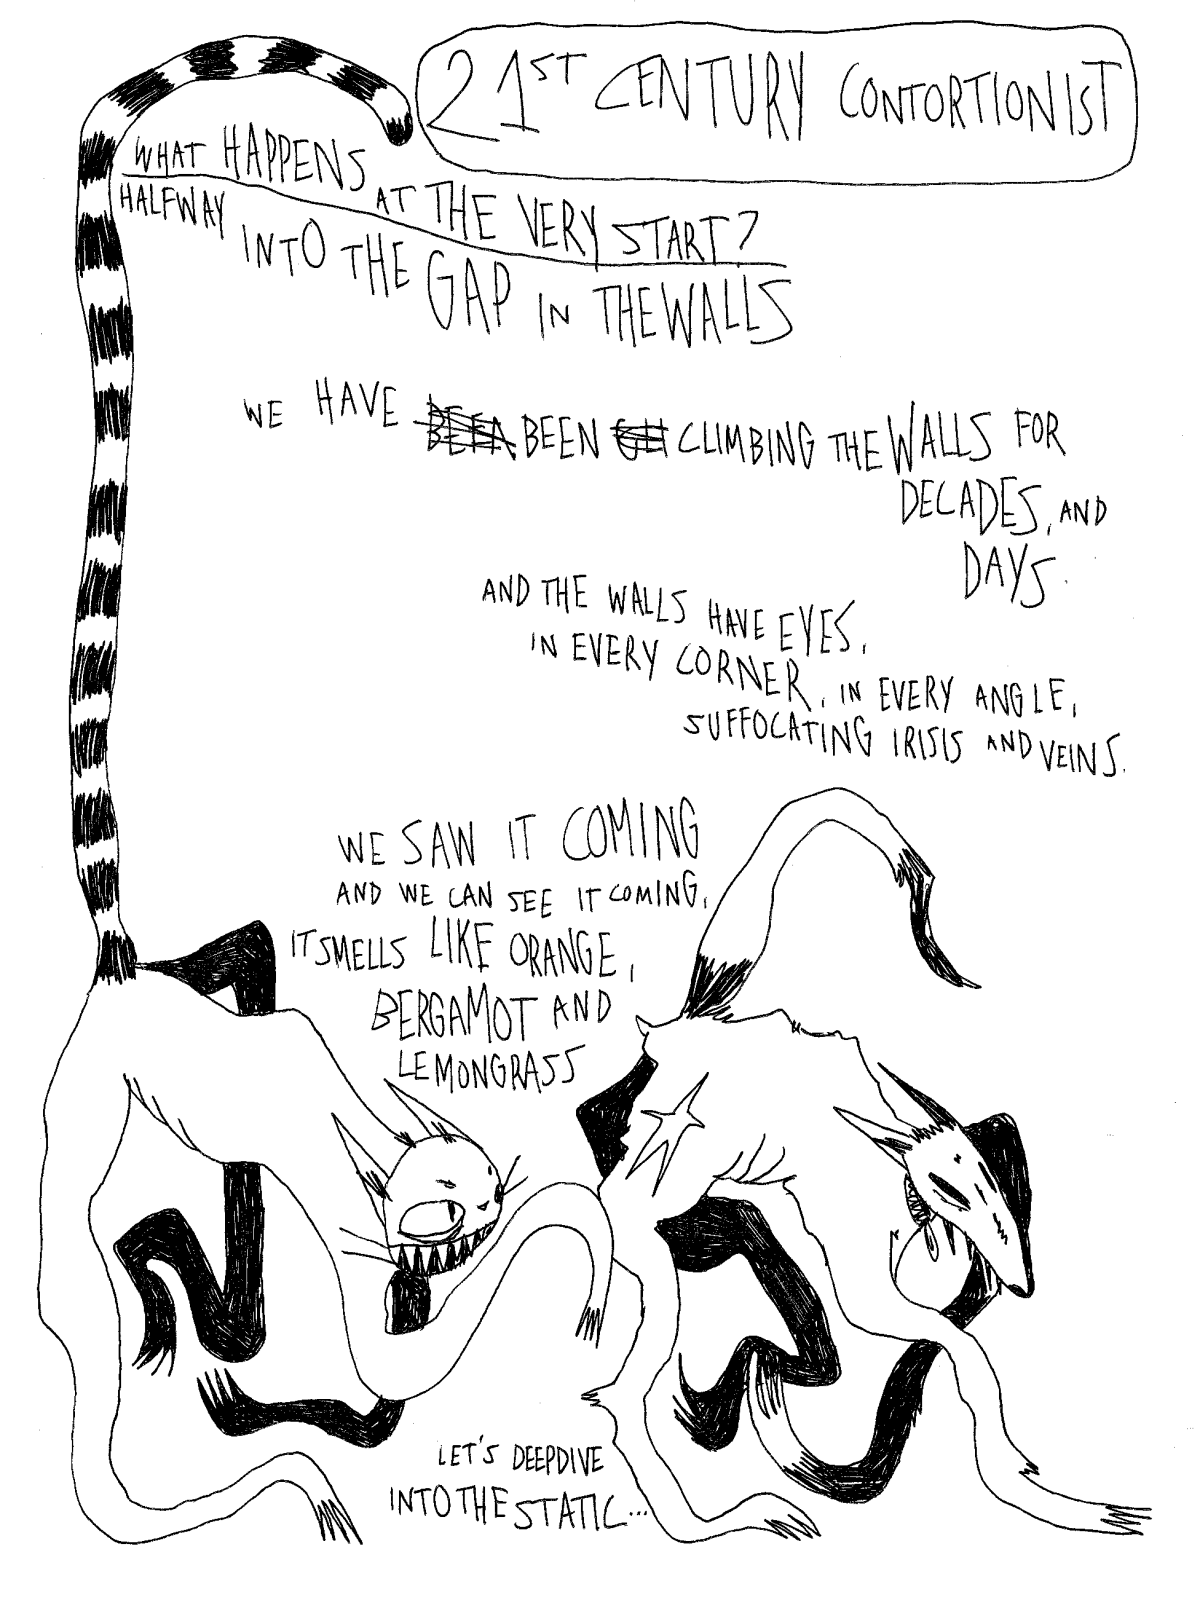 21ST CENTURY CONTORTIONIST
WHAT HAPPENS AT THE VERY START?
HALFWAY INTO THE GAP IN THE WALLS
WE HAVE BEEN CLIMBING THE WALLS FOR
DECADES, AND
DAYS.
AND THE WALLS HAVE EYES,
IN EVERY CORNER, IN EVERY ANGLE,
SUFFOCATING IRISIS AND VEINS.
WE SAW IT COMING
AND WE CAN SEE IT COMING,
IT SMELLS LIKE ORANGE,
BERGAMOT AND
LEMONGRASS
LET'S DEEPDIVE
INTO THE STATIC...